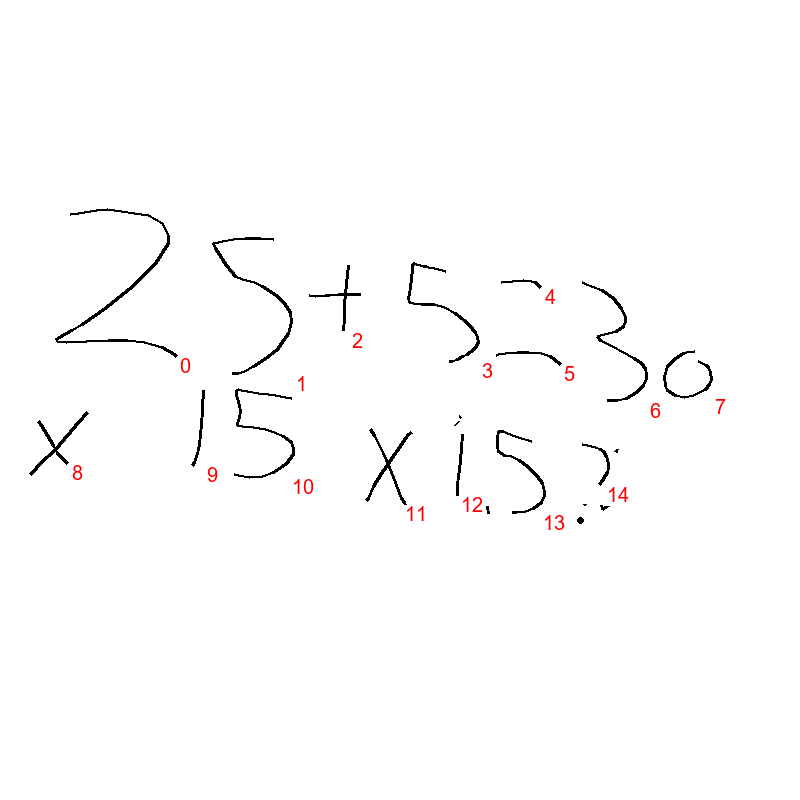 25 + 5 = 30
0 1 2 3 4 5 6 7
x 15 x 1.5?
8 9 10 11 12 13 14